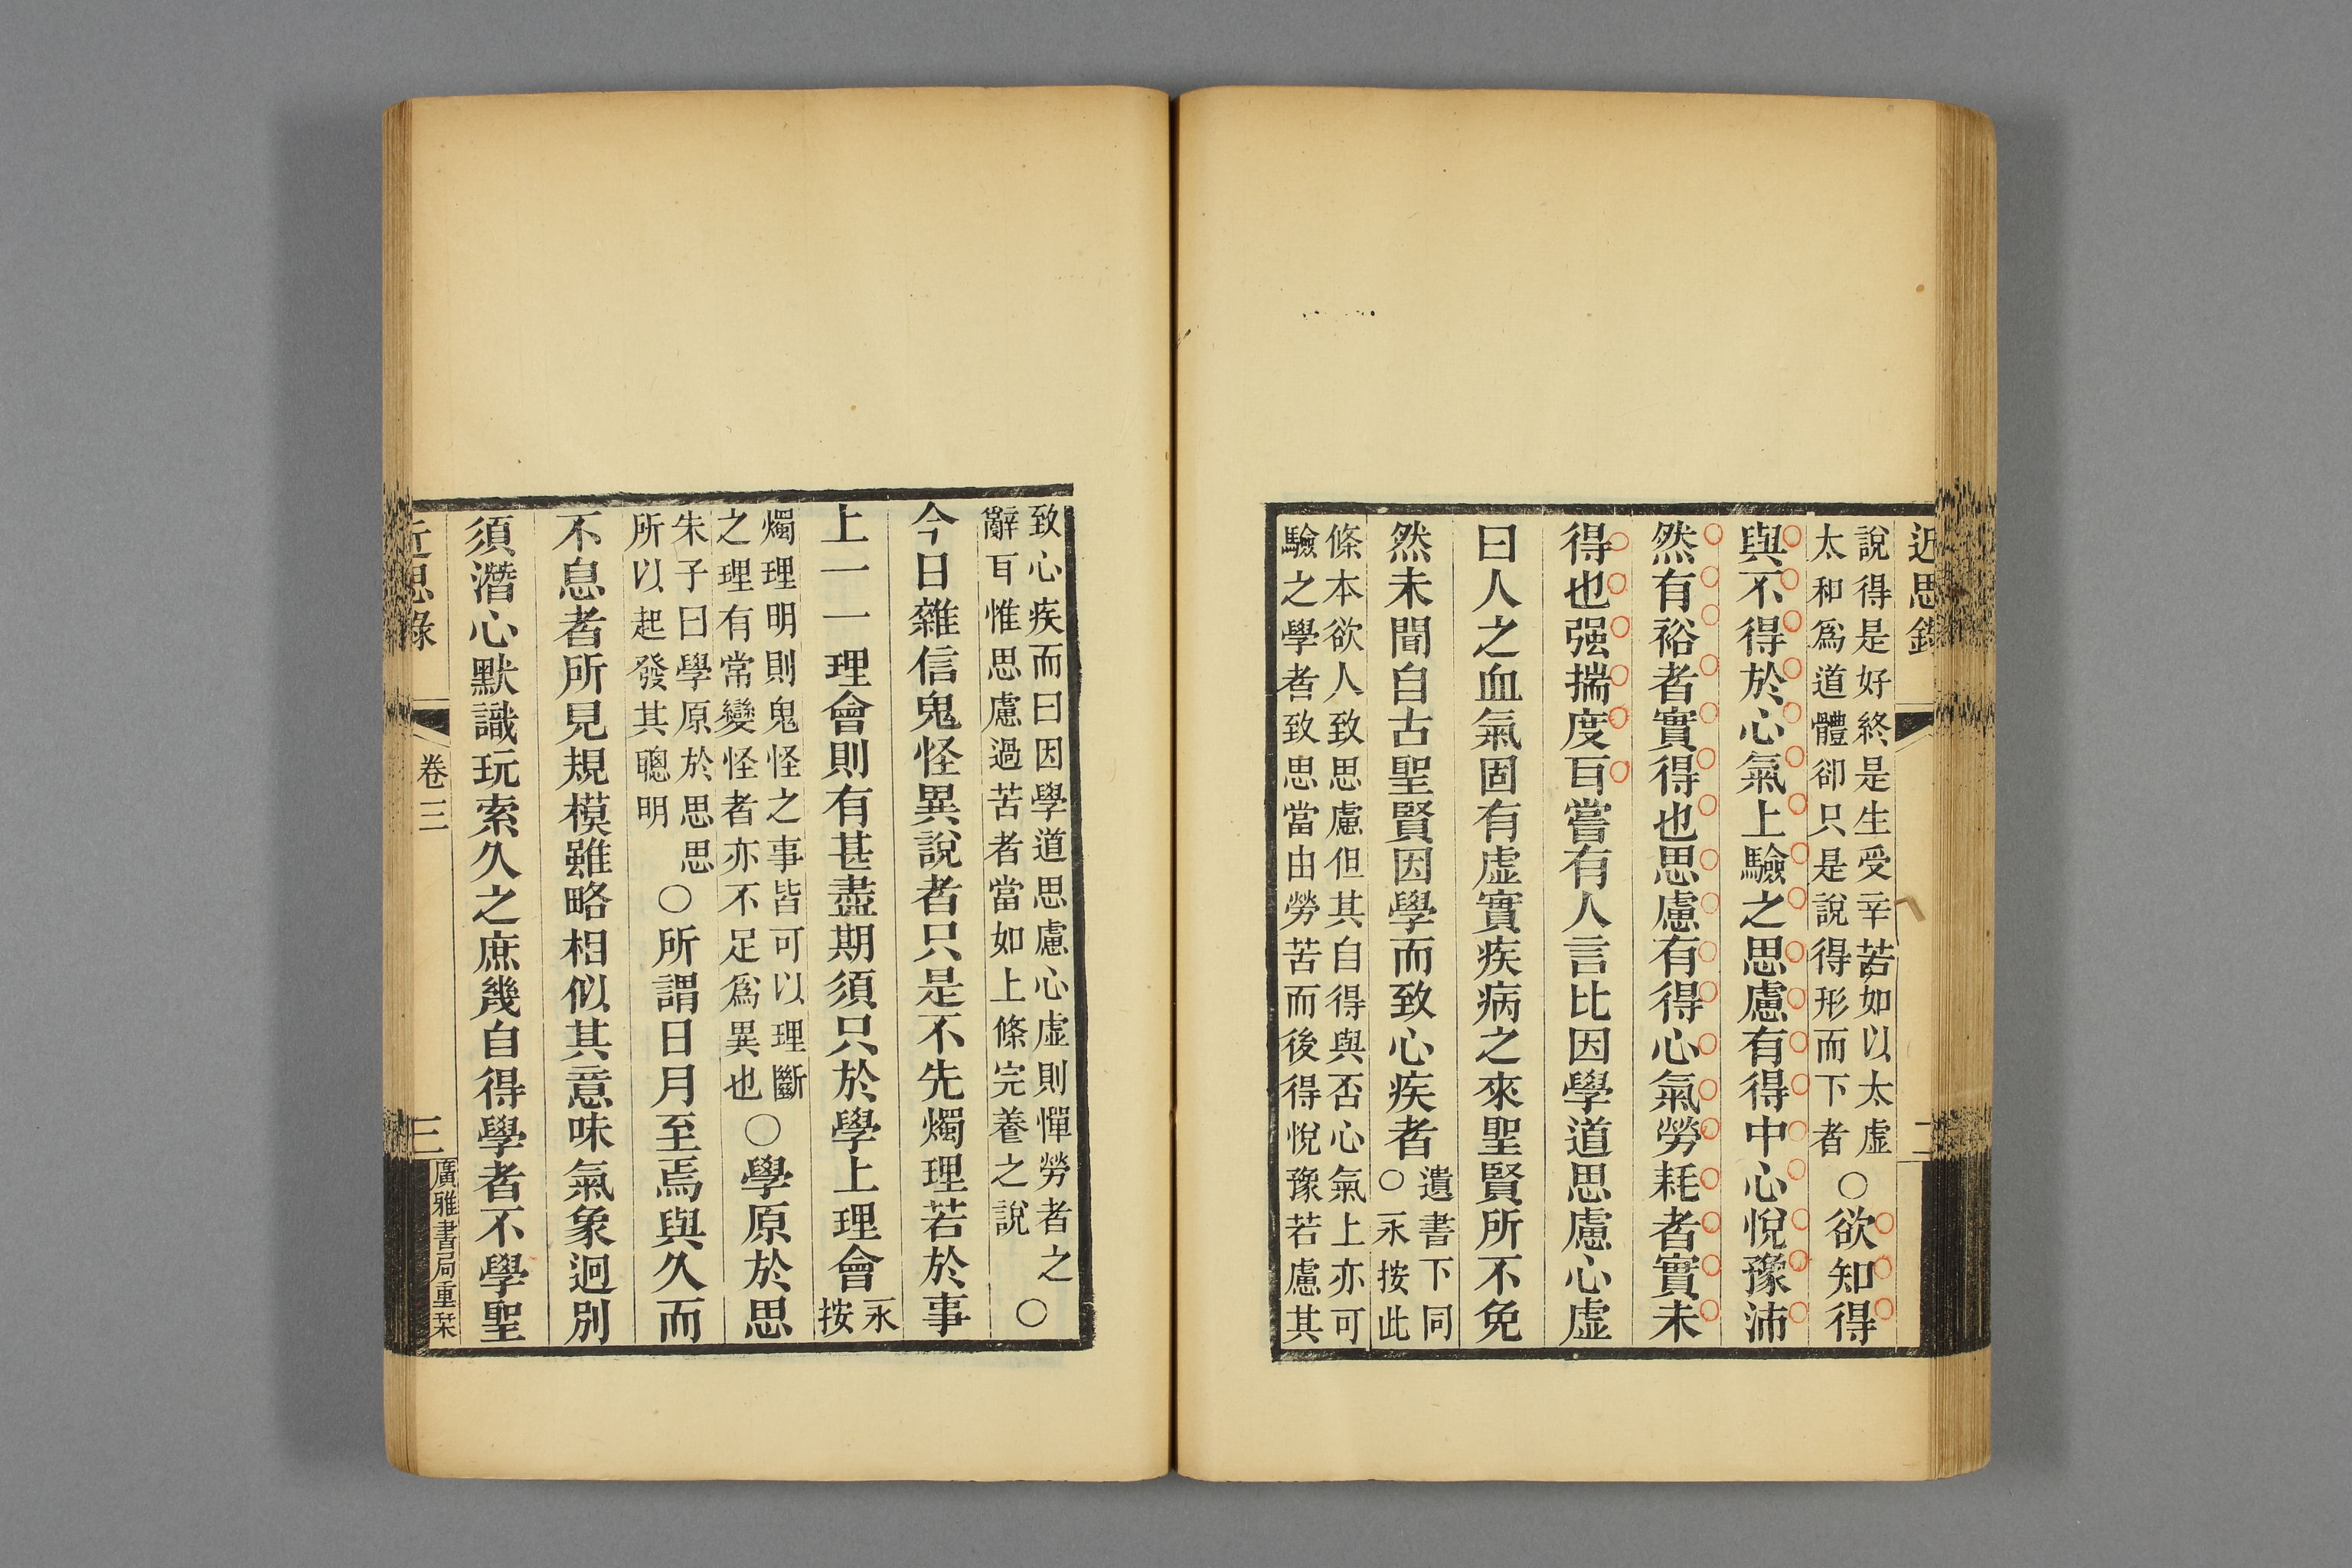 近思錄
二
說得是好終是生受辛苦如以太虛
太和爲道體卻只是說得形而下者
○欲知得
與不得於心氣上驗之思慮有得中心悅豫沛
然有裕者實得也思慮有得心氣勞耗者實未
得也强揣度耳嘗有人言比因學道思慮心虛
曰人之血氣固有虛實疾病之來聖賢所不免
然未聞自古聖賢因學而致心疾者
遺書下同
○永按此
條本欲人致思慮但其自得與否心氣上亦可
驗之學者致思當由勞苦而後得悅豫若慮其
致心疾而曰因學道思慮心虛則憚勞者之
辭耳惟思慮過苦者當如上條完養之說
○
今日雜信鬼怪異說者只是不先燭理若於事
上一一理會則有甚盡期須只於學上理會
永
按
燭理明則鬼怪之事皆可以理斷
之理有常變怪者亦不足爲異也
○學原於思
朱子曰學原於思思
所以起發其聰明
○所謂日月至焉與久而
不息者所見規模雖略相似其意味氣象迥別
須潛心默識玩索久之庶幾自得學者不學聖
近思錄
卷三
三
廣雅書局重栞